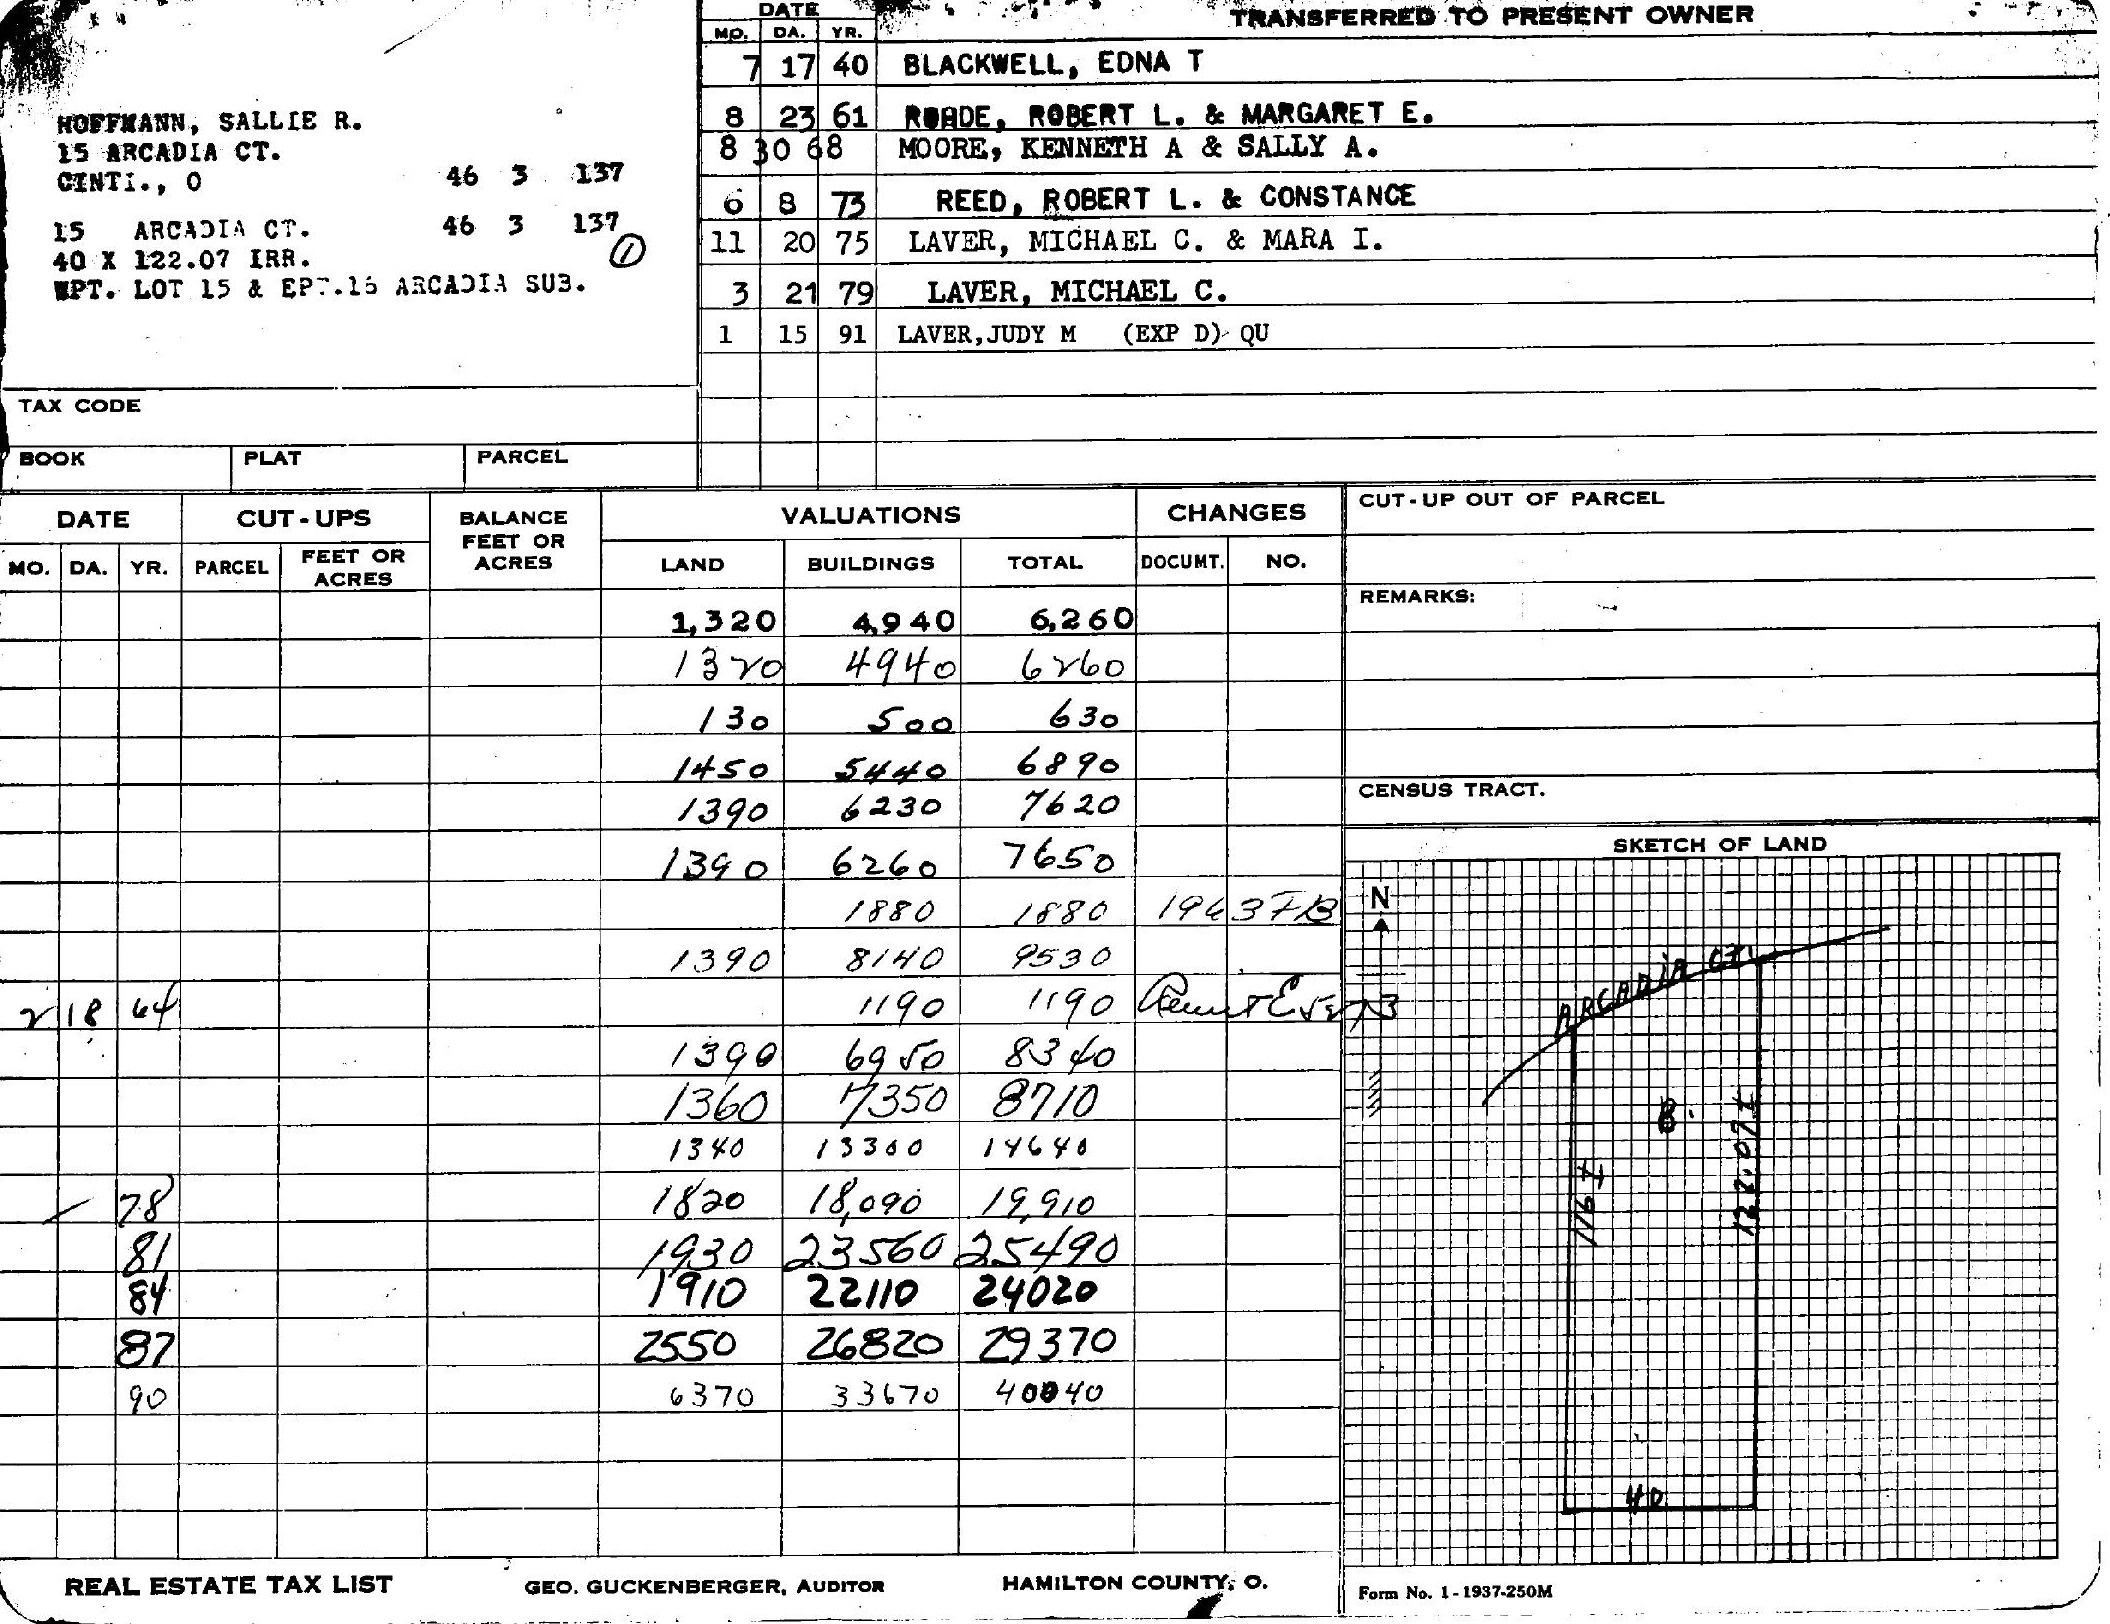 HOFFMANN, SALLIE R.
15 ARCADIA CT.
CINTI., O 46 3 137
15 ARCADIA CT. 46 3 137
①
40 X 122.07 IRR.
WPT. LOT 15 & EPT.16 ARCADIA SUB.
TAX CODE
BOOK PLAT PARCEL
DATE TRANSFERRED TO PRESENT OWNER
MO. DA. YR.
7 17 40 BLACKWELL, EDNA T
8 23 61 ROADE, ROBERT L. & MARGARET E.
8 30 68 MOORE, KENNETH A & SALLY A.
6 8 73 REED, ROBERT L. & CONSTANCE
11 20 75 LAVER, MICHAEL C. & MARA I.
3 21 79 LAVER, MICHAEL C.
1 15 91 LAVER,JUDY M (EXP D) QU
DATE CUT-UPS BALANCE FEET OR ACRES VALUATIONS CHANGES
MO. DA. YR. PARCEL FEET OR ACRES LAND BUILDINGS TOTAL DOCUMT. NO.
1,320 4,940 6,260
1320 4940 6260
130 500 630
1450 5440 6890
1390 6230 7620
1390 6260 7650
1880 1880 1963 FB
1390 8140 9530
2 18 64 1190 1190
1390 6950 8340
1360 7350 8710
1340 13300 14640
78 1820 18,090 19,910
81 1930 23560 25490
84 1910 22110 24020
87 2550 26820 29370
90 6370 33670 40040
CUT-UP OUT OF PARCEL
REMARKS:
CENSUS TRACT.
SKETCH OF LAND
N
ARCADIA CT.
B
116 ±
122.07 ±
40
REAL ESTATE TAX LIST GEO. GUCKENBERGER, AUDITOR HAMILTON COUNTY, O.
Form No. 1-1937-250M